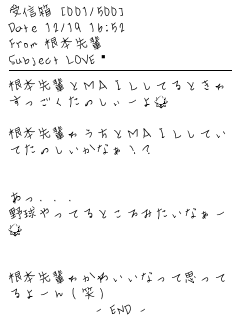 受信箱 [001/500]
Date 12/19 16:52
From 根本先輩
Subject LOVE
根本先輩とMAILしてるときわ
すっごくたのしぃーよ
根本先輩わうちとMAILしてい
てたのしいかなぁ!?
あっ...
野球やってるとこおみたいなぁー
根本先輩わかわいいなって思って
るよーん(笑)
- END -